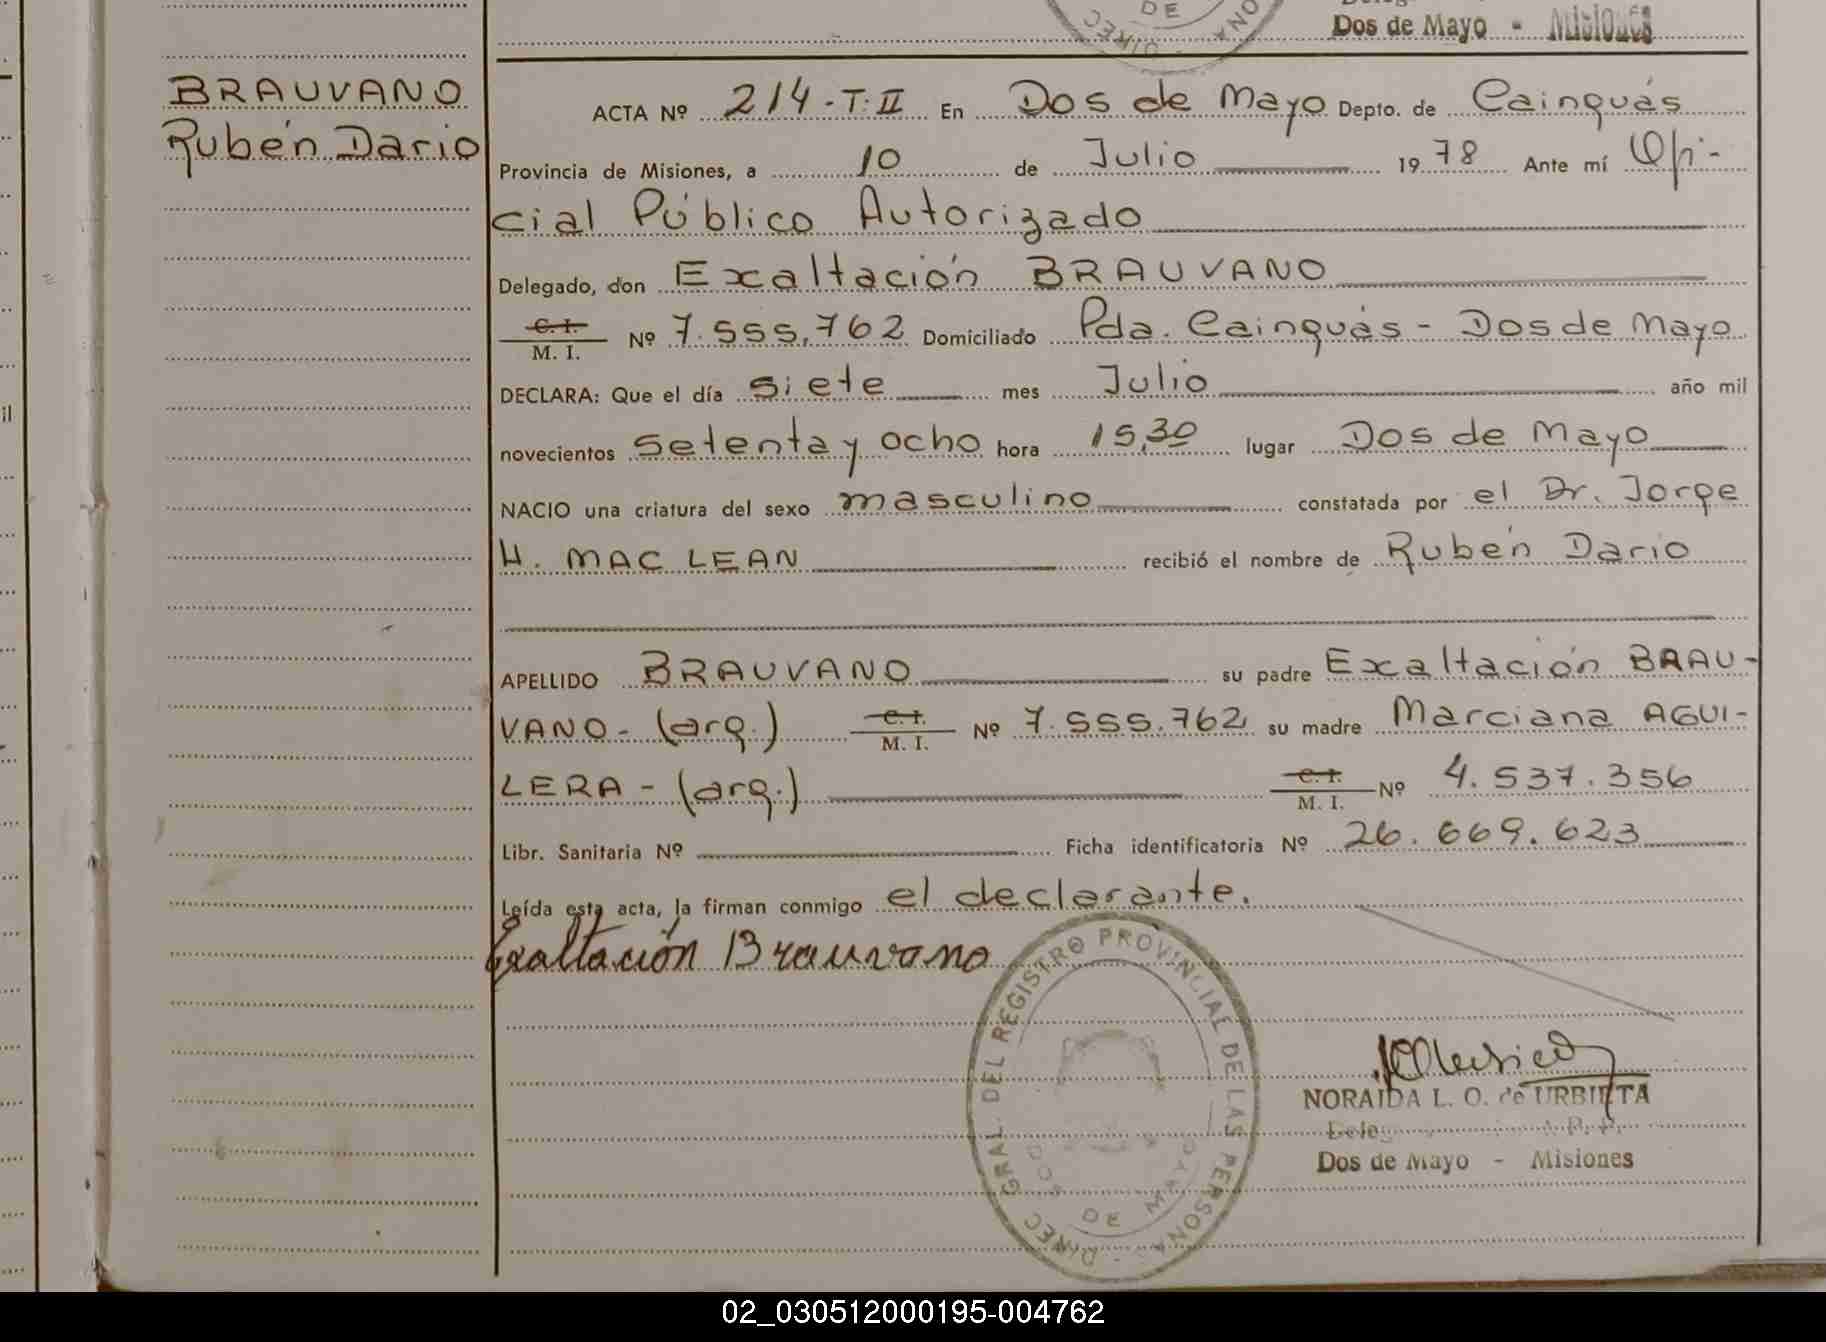 Dos de Mayo - Misiones
BRAUVANO
Rubén Dario
ACTA Nº 214 - T: II En Dos de Mayo Depto. de Cainguás
Provincia de Misiones, a 10 de Julio 1978 Ante mí Ofi-
cial Público Autorizado
Delegado, don Exaltación BRAUVANO
C. I. M. I. Nº 7.555.762 Domiciliado Pda. Cainguás - Dos de Mayo
DECLARA: Que el día siete mes Julio año mil
novecientos setenta y ocho hora 15,30 lugar Dos de Mayo
NACIO una criatura del sexo masculino constatada por el Dr. Jorge
H. MAC LEAN recibió el nombre de Rubén Dario
APELLIDO BRAUVANO su padre Exaltación BRAU-
VANO - (arg.) C. I. M. I. Nº 7.555.762 su madre Marciana AGUI-
LERA - (arg.) C. I. M. I. Nº 4.537.356
Libr. Sanitaria Nº Ficha identificatoria Nº 26.669.623
Leída esta acta, la firman conmigo el declarante.
Exaltación Brauvano
DIREC. GRAL. DEL REGISTRO PROVINCIAL DE LAS PERSONAS
DOS DE MAYO
NORAIDA L. O. de URBIETA
Dos de Mayo - Misiones
02_030512000195-004762